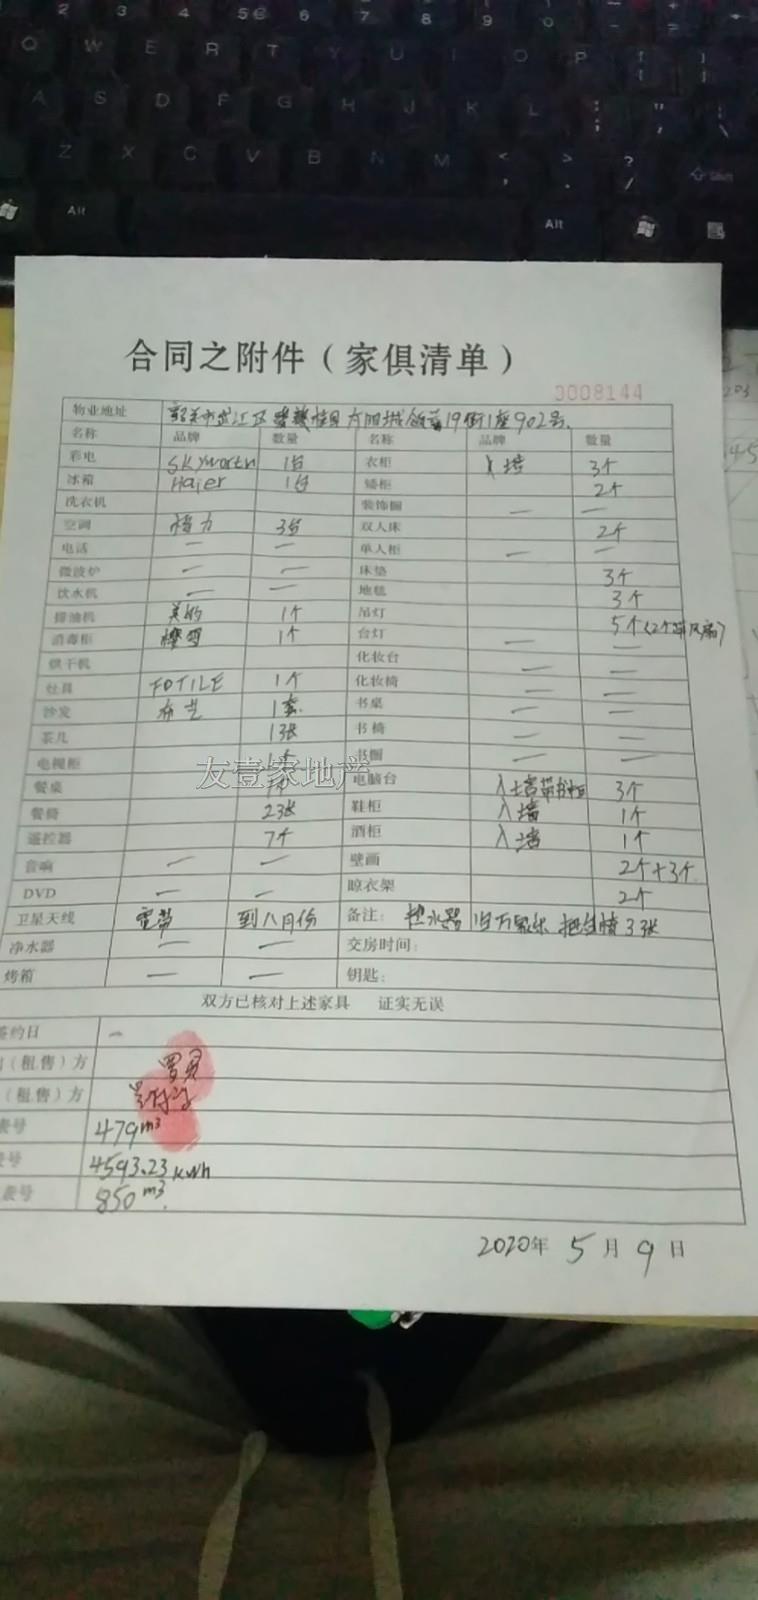 2 3 4 5€ 6 7 8 9 0
Q W E R T Y U I O P
A S D F G H J K L
Z X C V B N M
Alt Alt
合同之附件（家俱清单）
0008144
物业地址 韶关市武江区 19街1座902号
名称 品牌 数量 名称 品牌 数量
彩电 Skyworth 1台 衣柜 入墙 3个
冰箱 Haier 1台 矮柜 2个
洗衣机 装饰橱 — —
空调 格力 3台 双人床 2个
电话 — — 单人柜 — —
微波炉 — — 床垫 3个
饮水机 — — 地毯 3个
排油机 美的 1个 吊灯 5个(2个带风扇)
消毒柜 樱雪 1个 台灯 — —
烘干机 化妆台 — —
灶具 FOTILE 1个 化妆椅 — —
沙发 布艺 1套 书桌 — —
茶几 1张 书椅 — —
电视柜 1个 书橱 — —
友壹家地产
餐桌 电脑台 入墙带书柜 3个
餐椅 23张 鞋柜 入墙 1个
遥控器 7个 酒柜 入墙 1个
音响 — — 壁画 2个+3个
DVD — — 晾衣架 2个
卫星天线 宽带 到八月份 备注： 热水器 1台万家乐 把
净水器 — — 交房时间：
烤箱 — — 钥匙：
双方已核对上述家具 证实无误
签约日 —
（租售）方
（租售）方
表号 479m³
表号 4593.23kwh
表号 850m³
2020年 5月9日